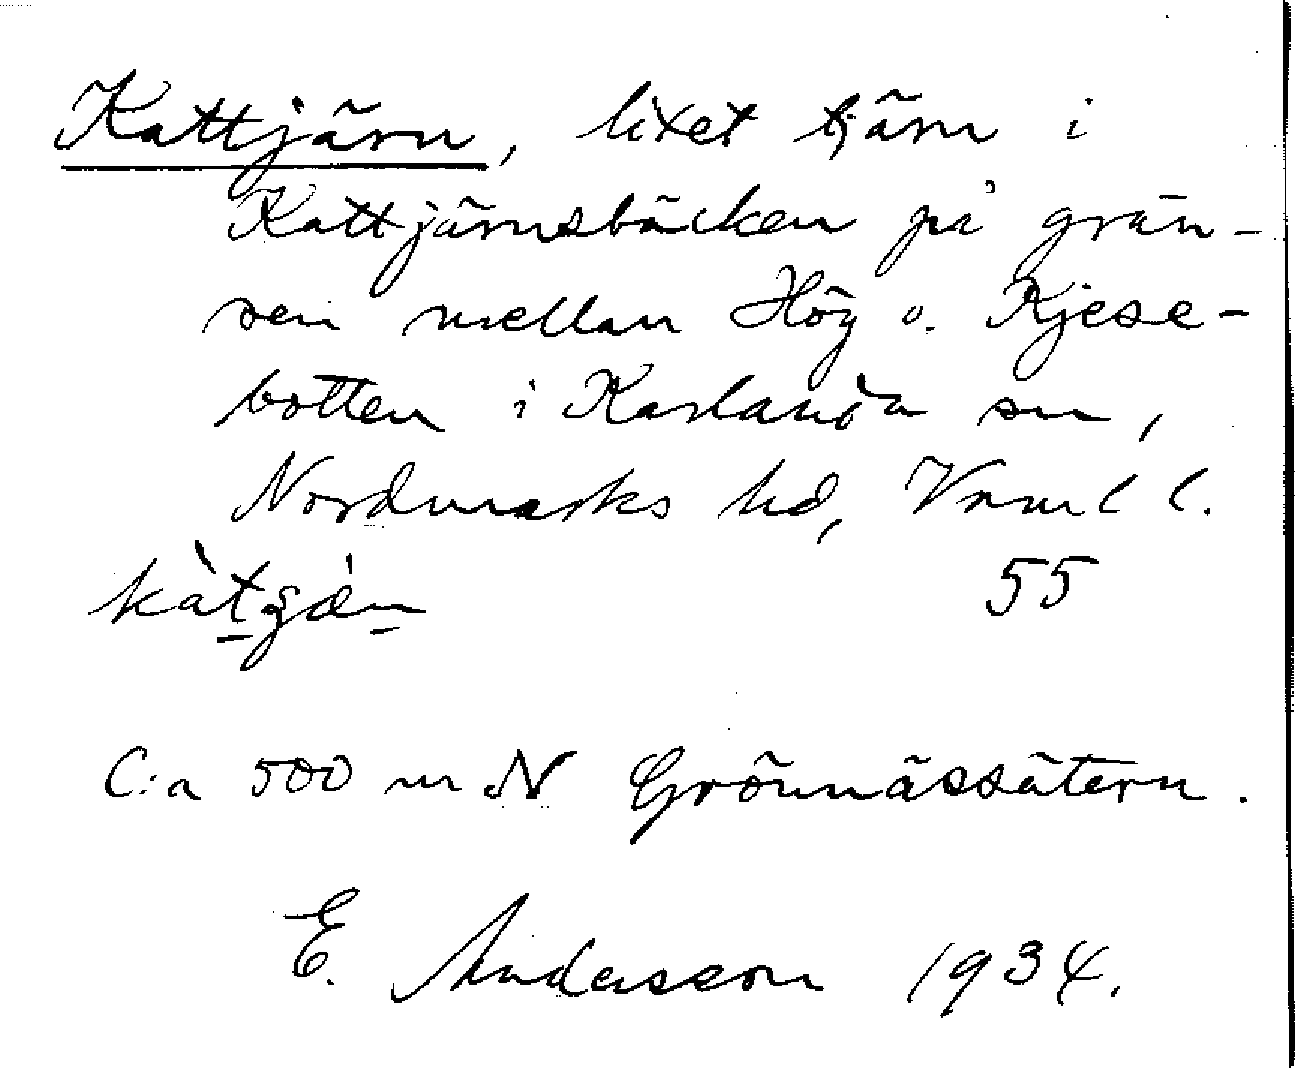 Kattjärn, litet tjärn i
Kattjärnsbäcken på grän-
sen mellan Hög o. Kjese-
botten i Karlanda sn,
Nordmarks hd, Vrml l.
55
C:a 500 m N Grönnässätern.
E. Andersson 1934.